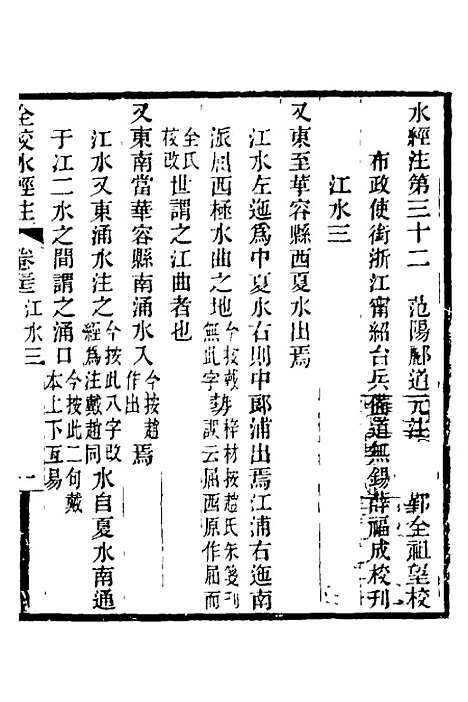 水經注第三十二 范陽酈道元注 鄞全祖望校
布政使銜浙江甯紹台兵備道無錫薛福成校刊
江水三
又東至華容縣西夏水出焉
江水左迤爲中夏水右則中郎浦出焉江浦右迤南
派屈西極水曲之地今按戴趙梓材按趙氏朱箋刊無此字誤云屈西原作屈而
全氏核改世謂之江曲者也
又東南當華容縣南涌水入今按趙作出焉
江水又東涌水注之今按此八字改經爲注戴趙同水自夏水南通
于江二水之間謂之涌口今按此二句戴本上下互易
全校水經注 卷三 江水三 一